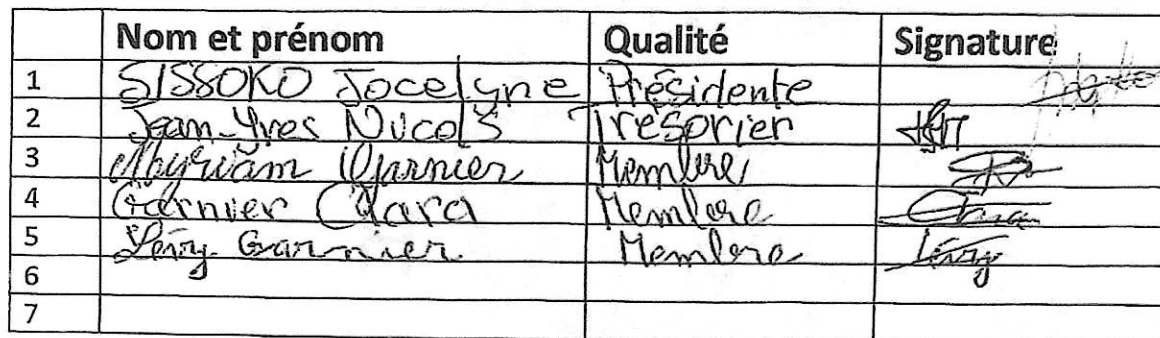 Nom et prénom Qualité Signature
1 SISSOKO Jocelyne Présidente
2 Jean-Yves Nucols Trésorier
3 Myriam Garnier Membre
4 Garnier Clara Membre Clara
5 Lény Garnier Membre Lény
6
7